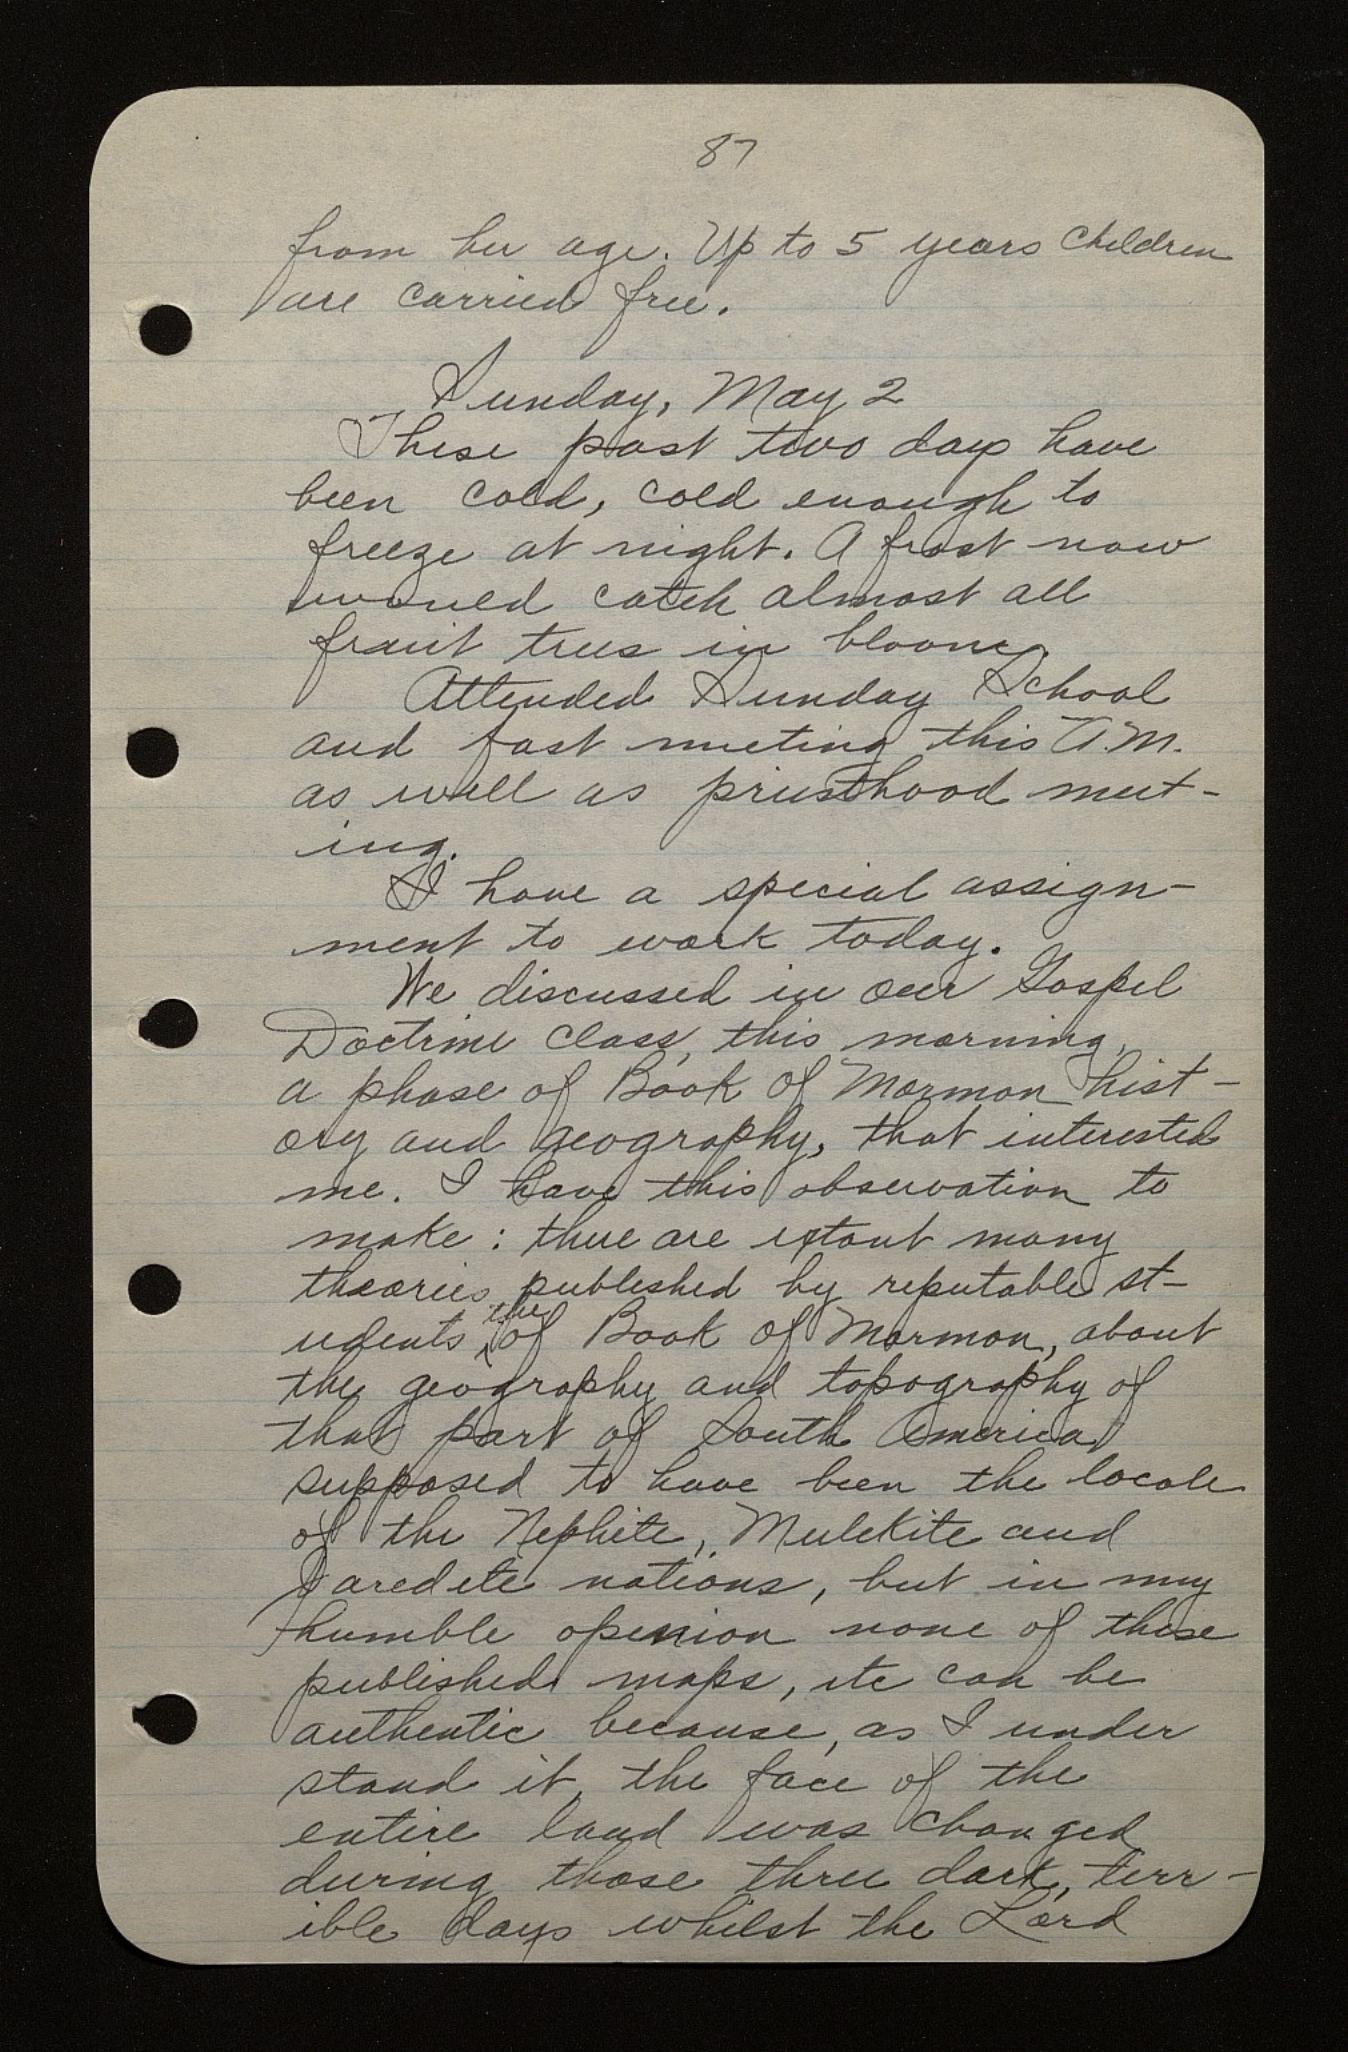 87
from her age. Up to 5 years children
are carried free.
Sunday, May 2
These past two days have
been cold, cold enough to
freeze at night. A frost now
would catch almost all
fruit trees in bloom.
Attended Sunday School
and fast meeting this A.M.
as well as priesthood meet-
ing.
I have a special assign-
ment to work today.
We discussed in our Gospel
Doctrine class, this morning,
a phase of Book of Mormon hist-
ory and geography, that interested
me. I have this observation to
make: there are extant many
theories published by reputable st-
udents of the Book of Mormon, about
the geography and topography of
that part of South America
supposed to have been the locale
of the Nephite, Mulekite and
Jaredite nations, but in my
humble opinion none of these
published maps, etc can be
authentic because, as I under
stand it, the face of the
entire land was changed
during those three dark, terr-
ible days whilst the Lord